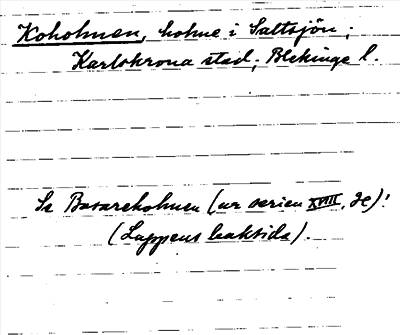 Koholmen, holme i Saltsjön;
Karlskrona stad; Blekinge l.
Se Basareholmen (ur serien XVIII, 2e)!
(Lappens baksida).